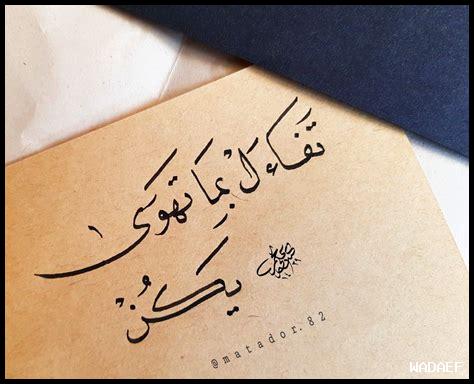 تَفَاءَلْ بِمَا تَهْوَى
يَكُنْ
@matador.82
WADAEF